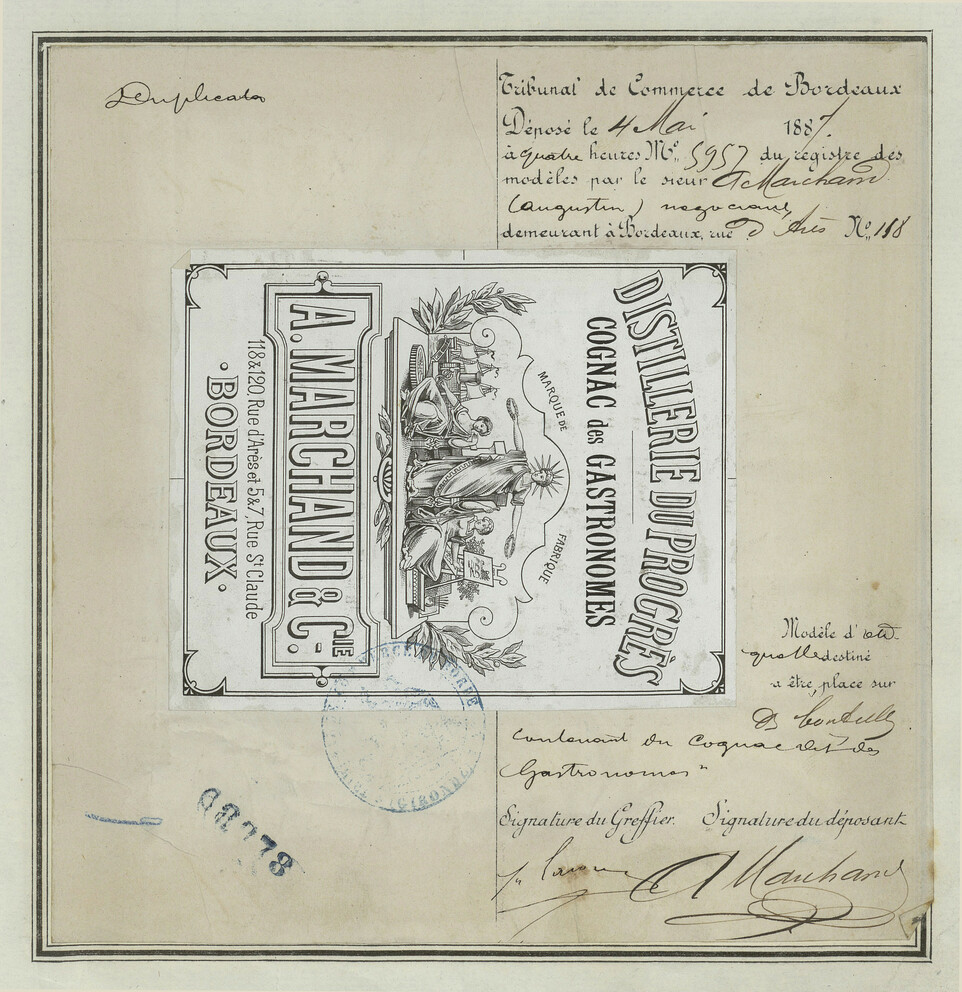 Duplicata
Tribunal de Commerce de Bordeaux
Déposé le 4 Mai 1887.
à quatre heures Mⁿ. 5957 du registre des
modèles par le sieur A Marchand.
(augustin) négociant
demeurant à Bordeaux, rue d'Arès Nº. 118
DISTILLERIE DU PROGRÈS
COGNAC des GASTRONOMES
MARQUE DE FABRIQUE
A. MARCHAND & CIE.
118 & 120, Rue d'Arès et 5 & 7, Rue St Claude
• BORDEAUX •
Modèle d'éti-
quette destiné
a être, place sur
Ds bouteilles
contenant du Cognac dit des
Gastronomes"
Signature du Greffier. Signature du déposant
A Marchand
GIRONDE